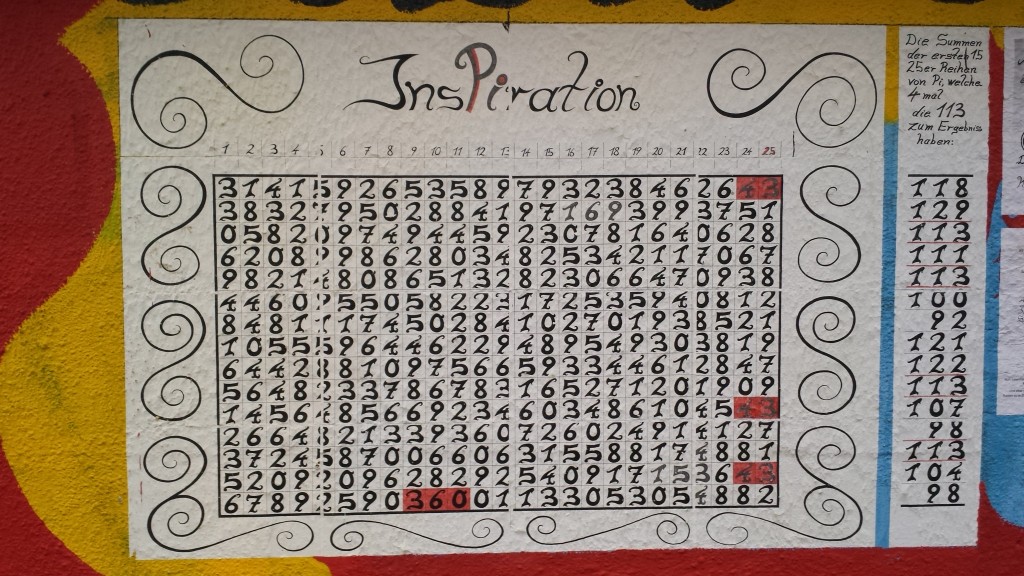 InsPiration
1 2 3 4 5 6 7 8 9 10 11 12 13 14 15 16 17 18 19 20 21 22 23 24 25
3141592653589793238462643
3832795028841971693993751
0582097494459230781640628
6208998628034825342117067
9821480865132823066470938
4460955058223172535940812
8481117450284102701938521
1055596446229489549303819
6442881097566593344612847
5648233786783165271201909
1456485669234603486104543
2664821339360726024914127
3724587006606315588174881
5209209628292540917153643
6789259036001133053054882
Die Summen
der ersten 15
25er Reihen
von Pi, welche
4 mal
die 113
zum Ergebniss
haben:
118
129
113
111
113
100
92
121
122
113
107
98
113
104
98